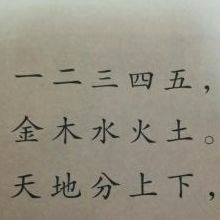 一二三四五，
金木水火土。
天地分上下，